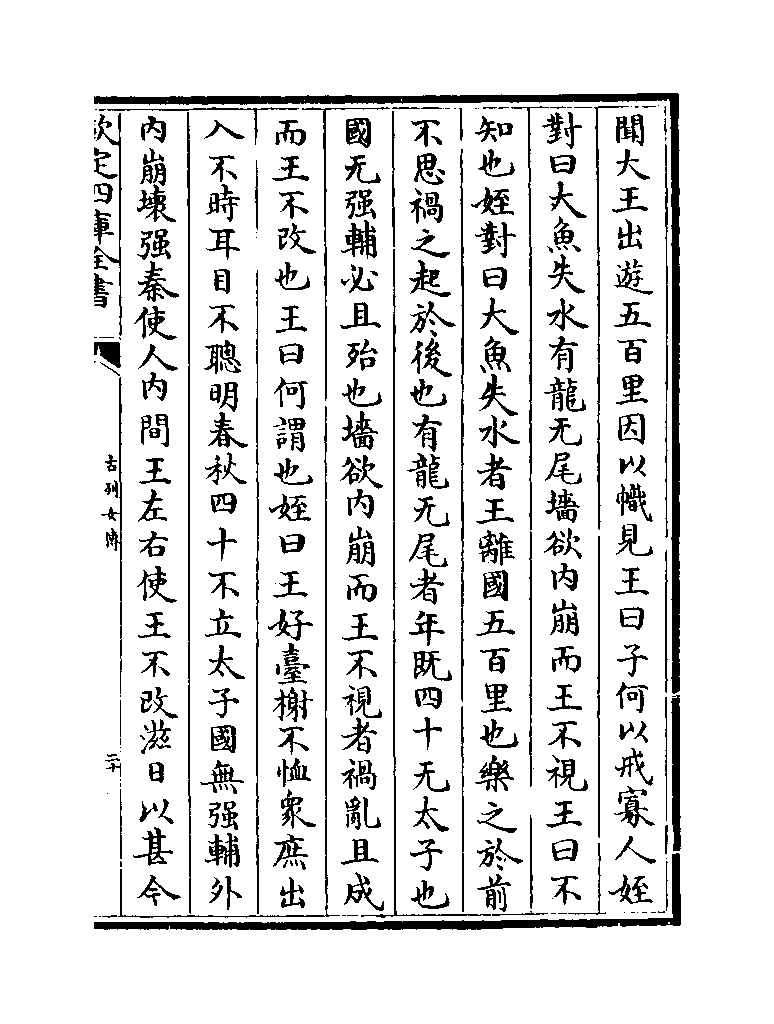 聞大王出遊五百里因以幟見王曰子何以戒寡人姪
對曰大魚失水有龍无尾墻欲内崩而王不視王曰不
知也姪對曰大魚失水者王離國五百里也樂之於前
不思禍之起於後也有龍无尾者年既四十无太子也
國无强輔必且殆也墻欲内崩而王不視者禍亂且成
而王不改也王曰何謂也姪曰王好臺榭不恤衆庶出
入不時耳目不聰明春秋四十不立太子國無强輔外
内崩壊强秦使人内間王左右使王不改滋日以甚今
欽定四庫全書
古列女傳
二十